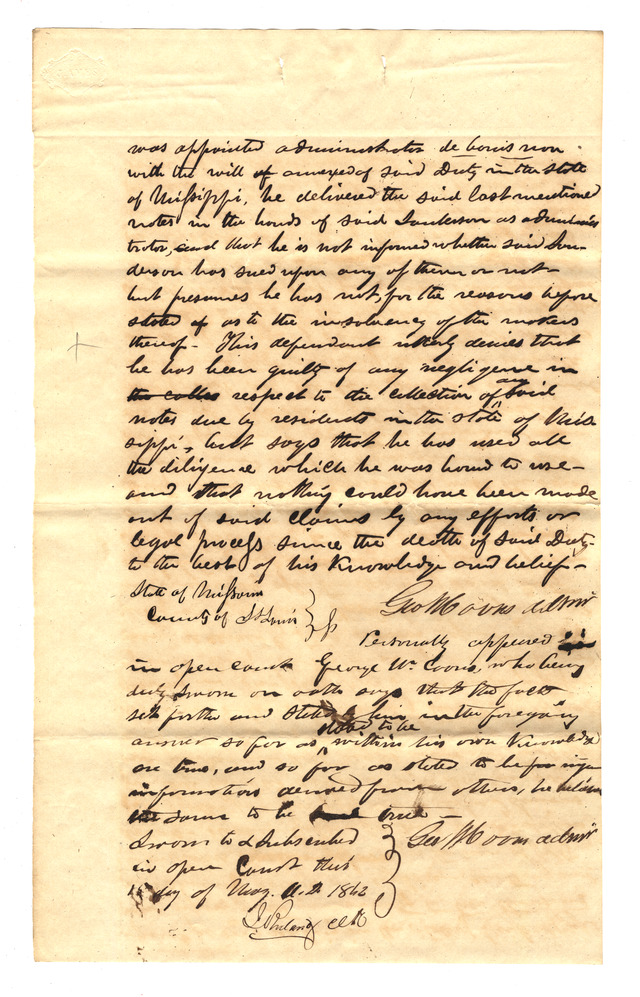 was appointed administrator de bonis non
with the will of annexed of said Duty in the State
of Mississippi, he delivered the said last mentioned
notes in the hands of said Sanderson as adminis
trator, and that he is not informed whether said San-
derson has sued upon any of them or not-
but presumes he has not, for the reasons before
stated of as to the insolvency of the makers
thereof- This defendant utterly denies that
he has been guilty of any negligence in
the collec respect to the collection of any said
notes due by residents in the State of Miss
sippi, but says that he has used all
the diligence which he was bound to use-
and that nothing could have been made
out of said claims by any efforts or
legal process since the death of said Duty-
to the best of his Knowledge and belief-
State of Missouri
County of St Louis } ss
Geo W Coons admr
Personally appeared
in open court George W. Coons, who being
duly sworn on oath says that the facts
set forth and stated him in the foregoing
answer so far as stated to be within his own Knowledge
are true, and so far as stated to be from
information derived from others, he believes
the same to be true-
Sworn to & Subscribed
in open Court this
day of May A.D. 1842
Geo W Coons admr
Clk